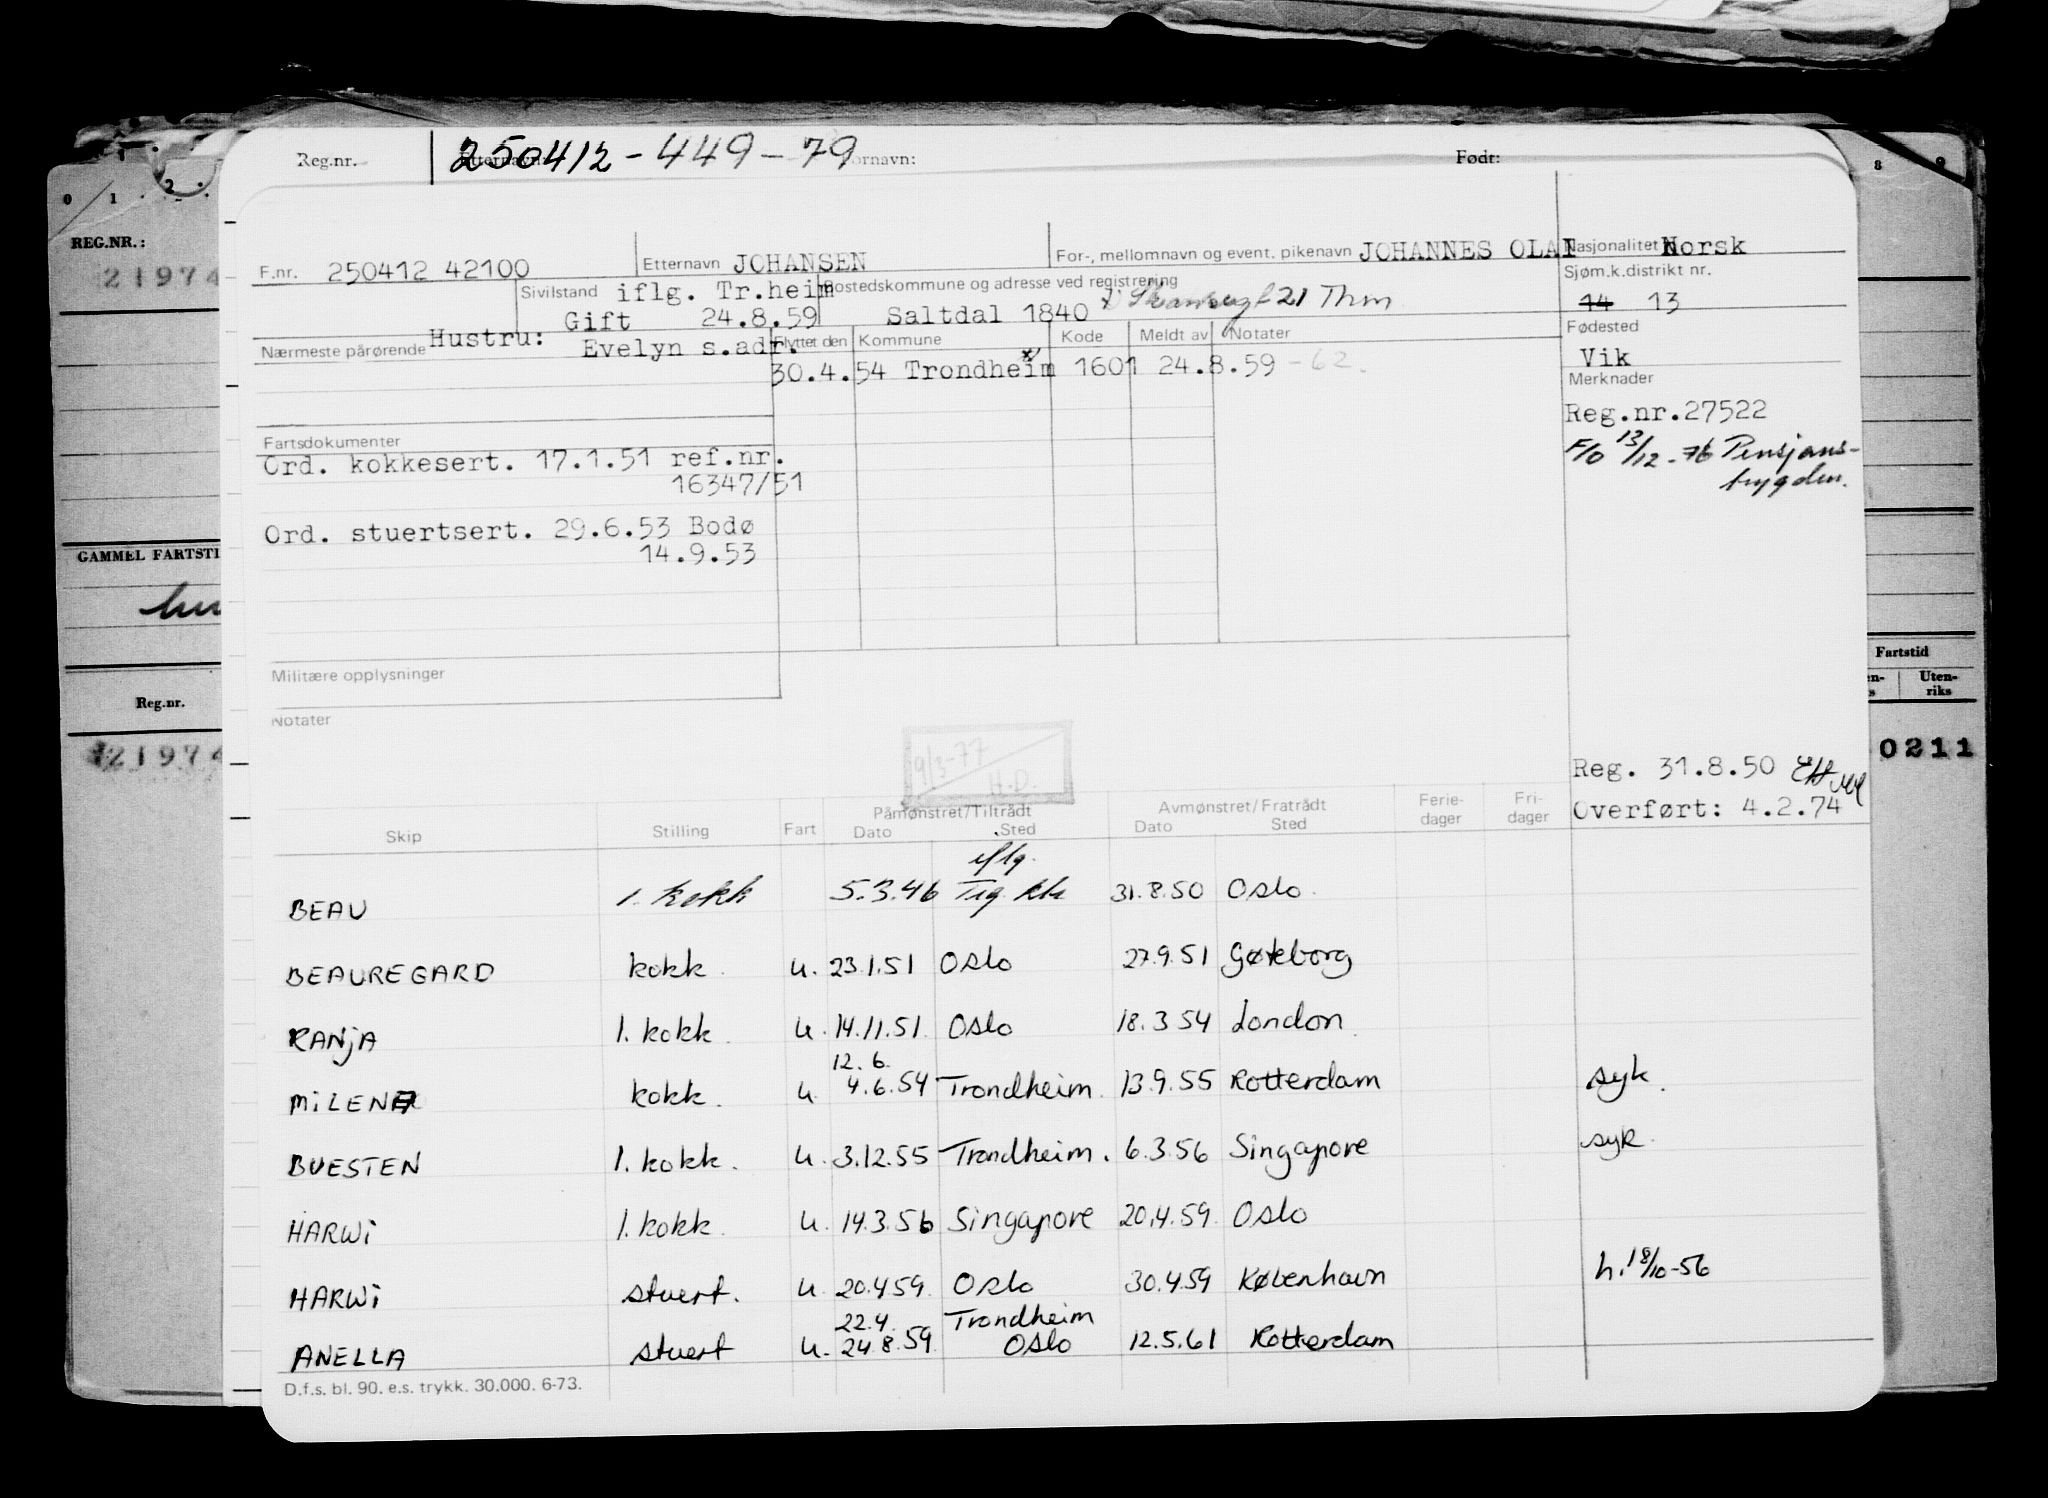 Reg.nr. Etternavn: 250412-449-79 Fornavn: Født:
0 1 2 8 9
REG.NR.:
21974
F.nr. 250412 42100 Etternavn JOHANSEN For-, mellomnavn og event. pikenavn JOHANNES OLAF Nasjonalitet Norsk
Sivilstand iflg. Tr.heim Bostedskommune og adresse ved registrering Sjøm.k.distrikt nr.
Gift 24.8.59 Saltdal 1840 21 Thm 14 13
Nærmeste pårørende Hustru: Evelyn s.adr. Flyttet den Kommune Kode Meldt av Notater Fødested
30.4.54 Trondheim x) 1601 24.8.59 -62. Vik
Merknader
Reg.nr.27522
Fartsdokumenter
F/O 13/12-76 Pensjons-
trygden.
Ord. kokkesert. 17.1.51 ref.nr.
16347/51
Ord. stuertsert. 29.6.53 Bodø
14.9.53
GAMMEL FARTSTI
Militære opplysninger
Fartstid
Uten-
riks
Reg.nr.
Notater
21974
0211
9/3-77
H.D.
Reg. 31.8.50
Overført: 4.2.74
Skip Stilling Fart Påmønstret/Tiltrådt Dato Sted Avmønstret/Fratrådt Dato Sted Ferie-dager Fri-dager
iflg.
BEAU 1. kokk 5.3.46 31.8.50 Oslo.
BEAUREGARD kokk. u. 23.1.51 Oslo 27.9.51 Gøteborg
RANJA 1. kokk. u. 14.11.51. Oslo 18.3 54 London
12.6.
MILENA kokk. u. 4.6.54 Trondheim. 13.9.55 Rotterdam syk.
BUESTEN 1. kokk. u. 3.12.55 Trondheim. 6.3.56 Singapore syk.
HARWI 1. kokk. u. 14.3.56 Singapore 20.4.59. Oslo
HARWI stuert. u. 20.4 59. Oslo 30.4.59 København h. 18/10-56
22.4. Trondheim
ANELLA stuert u. 24.8.59. Oslo 12.5.61 Rotterdam
D.f.s. bl. 90. e.s. trykk. 30.000. 6-73.